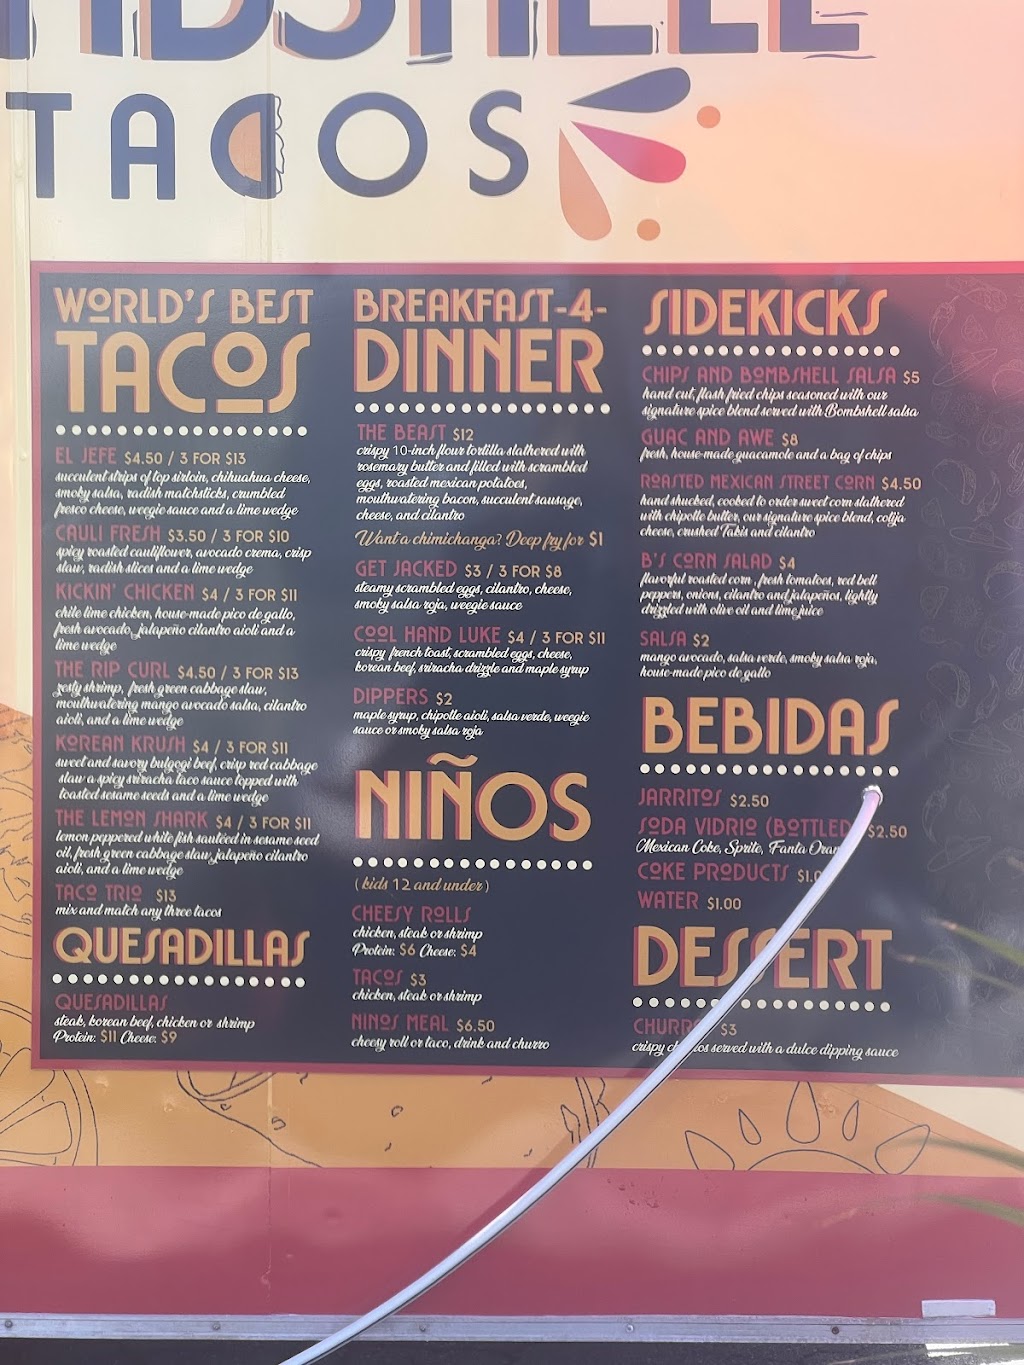 TACOS
WORLD'S BEST
TACOS
EL JEFE $4.50 / 3 FOR $13
succulent strips of top sirloin, chihuahua cheese,
smoky salsa, radish matchsticks, crumbled
fresco cheese, weegie sauce and a lime wedge
CAULI FRESH $3.50 / 3 FOR $10
spicy roasted cauliflower, avocado crema, crisp
slaw, radish slices and a lime wedge
KICKIN' CHICKEN $4 / 3 FOR $11
chile lime chicken, house-made pico de gallo,
fresh avocado, jalapeño cilantro aioli and a
lime wedge
THE RIP CURL $4.50 / 3 FOR $13
zesty shrimp, fresh green cabbage slaw,
mouthwatering mango avocado salsa, cilantro
aioli, and a lime wedge
KOREAN KRUSH $4 / 3 FOR $11
sweet and savory bulgogi beef, crisp red cabbage
slaw a spicy sriracha taco sauce topped with
toasted sesame seeds and a lime wedge
THE LEMON SHARK $4 / 3 FOR $11
lemon peppered white fish sautéed in sesame seed
oil, fresh green cabbage slaw, jalapeño cilantro
aioli, and a lime wedge
TACO TRIO $13
mix and match any three tacos
QUESADILLAS
QUESADILLAS
steak, korean beef, chicken or shrimp
Protein: $11 Cheese: $9
BREAKFAST-4-
DINNER
THE BEAST $12
crispy 10-inch flour tortilla slathered with
rosemary butter and filled with scrambled
eggs, roasted mexican potatoes,
mouthwatering bacon, succulent sausage,
cheese, and cilantro
Want a chimichanga? Deep fry for $1
GET JACKED $3 / 3 FOR $8
steamy scrambled eggs, cilantro, cheese,
smoky salsa roja, weegie sauce
COOL HAND LUKE $4 / 3 FOR $11
crispy french toast, scrambled eggs, cheese,
korean beef, sriracha drizzle and maple syrup
DIPPERS $2
maple syrup, chipotle aioli, salsa verde, weegie
sauce or smoky salsa roja
NIÑOS
(kids 12 and under)
CHEESY ROLLS
chicken, steak or shrimp
Protein: $6 Cheese: $4
TACOS $3
chicken, steak or shrimp
NINOS MEAL $6.50
cheesy roll or taco, drink and churro
SIDEKICKS
CHIPS AND BOMBSHELL SALSA $5
hand cut, flash fried chips seasoned with our
signature spice blend served with Bombshell salsa
GUAC AND AWE $8
fresh, house-made guacamole and a bag of chips
ROASTED MEXICAN STREET CORN $4.50
hand shucked, cooked to order sweet corn slathered
with chipotle butter, our signature spice blend, cotija
cheese, crushed Takis and cilantro
B'S CORN SALAD $4
flavorful roasted corn, fresh tomatoes, red bell
peppers, onions, cilantro and jalapeños, lightly
drizzled with olive oil and lime juice
SALSA $2
mango avocado, salsa verde, smoky salsa roja,
house-made pico de gallo
BEBIDAS
JARRITOS $2.50
SODA VIDRIO (BOTTLED) $2.50
Mexican Coke, Sprite, Fanta
COKE PRODUCTS
WATER $1.00
DESSERT
$3
crispy served with a dulce dipping sauce